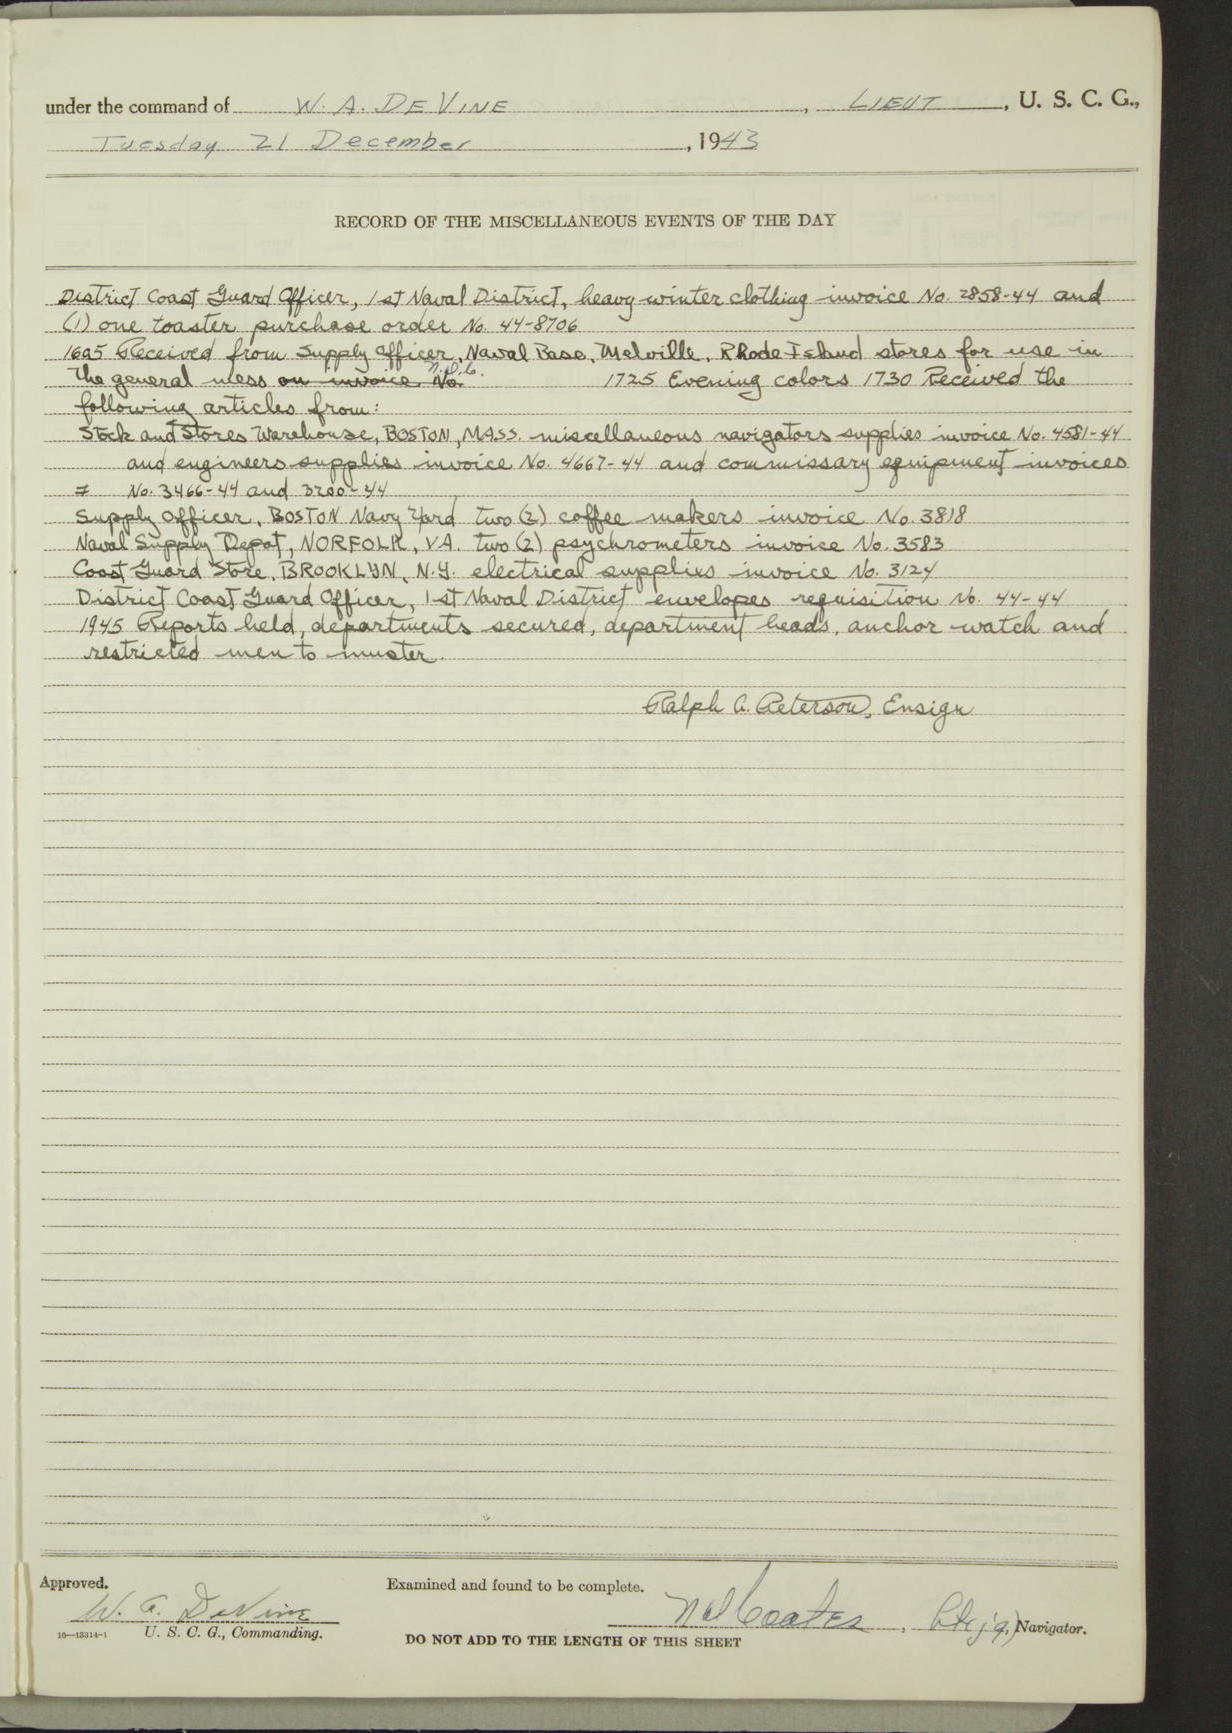 under the command of W. A. DEVINE, LIEUT, U. S. C. G.,
Tuesday 21 December, 1943
RECORD OF THE MISCELLANEOUS EVENTS OF THE DAY
District Coast Guard Officer, 1st Naval District, heavy winter clothing invoice No. 2858-44 and
(1) one toaster purchase order No. 44-8706
1605 Received from Supply Officer, Naval Base, Melville, Rhode Island stores for use in
the general mess on invoice No. 1725 Evening colors 1730 Received the
following articles from:
Stock and Stores Warehouse, BOSTON, MASS. miscellaneous navigators supplies invoice No. 4581-44
and engineers supplies invoice No. 4667-44 and commissary equipment invoices
No. 3466-44 and 3200-44
Supply Officer, BOSTON Navy Yard two (2) coffee makers invoice No. 3818
Naval Supply Depot, NORFOLK, VA. two (2) psychrometers invoice No. 3583
Coast Guard Store, BROOKLYN, N.Y. electrical supplies invoice No. 3124
District Coast Guard Officer, 1st Naval District envelopes requisition No. 44-44
1945 Reports held, departments secured, department heads, anchor watch and
restricted men to muster.
Ralph A. Peterson, Ensign
Approved.
Examined and found to be complete.
W. A. DeVine
Coates, Lt(jg) Navigator.
16—13314-1 U. S. C. G., Commanding.
DO NOT ADD TO THE LENGTH OF THIS SHEET